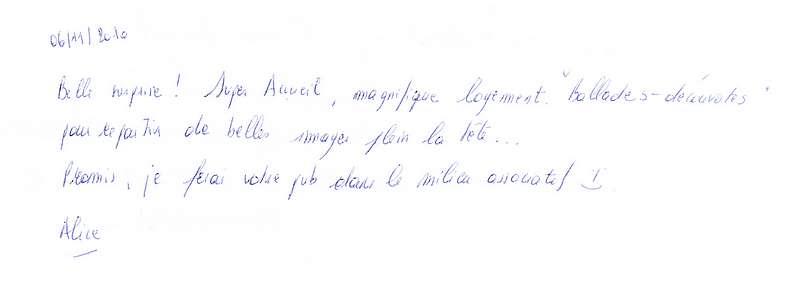 06/11/2010
Belle surprise ! Super Accueil, magnifique logement. "Ballades-découvertes"
pour repartir de belles images plein la tête...
Promis, je ferai votre pub dans le milieu associatif !
Alice